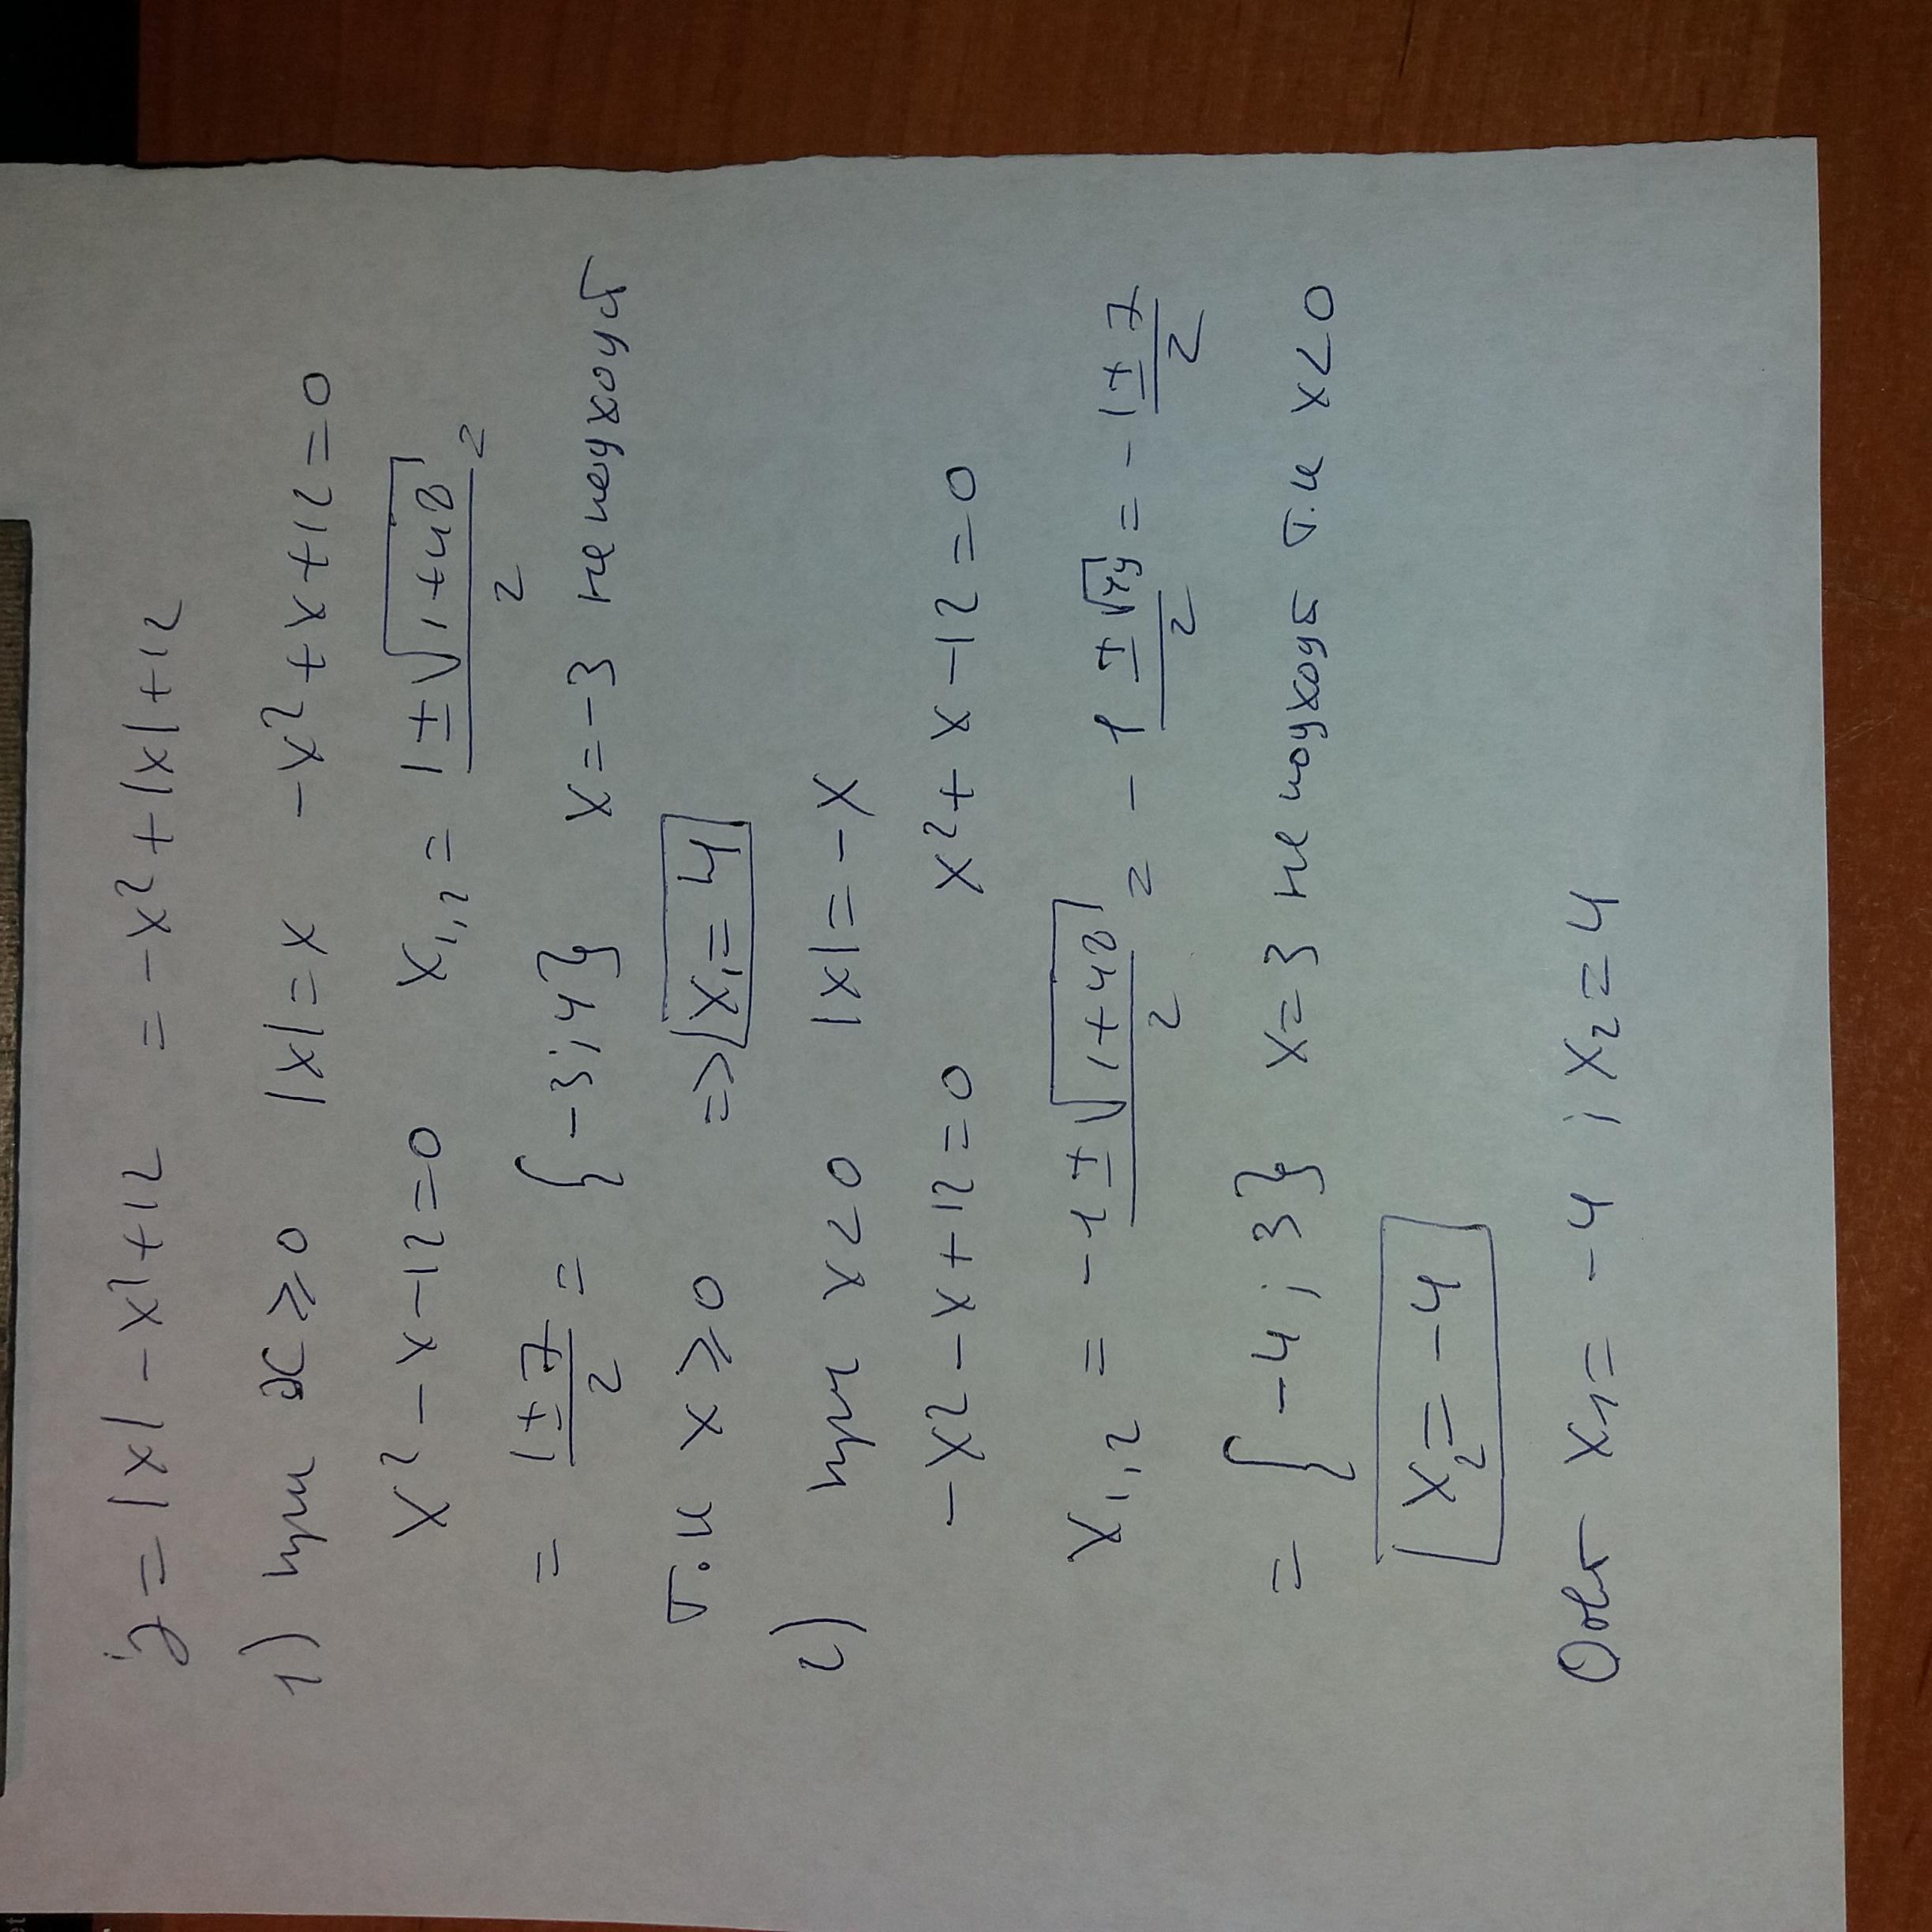 y = |x| - x² + 12 = -x² + |x| + 12
1) при x ≥ 0 |x| = x -x² + x + 12 = 0
x² - x - 12 = 0 x₁,₂ = (1 ± √(1+48))/2 =
= (1 ± 7)/2 = {-3; 4} x = -3 не подходит
т.к x ≥ 0 => x₁ = 4
2) при x < 0 |x| = -x
-x² - x + 12 = 0 x² + x - 12 = 0
x₁,₂ = (-1 ± √(1+48))/2 = (-1 ± √49)/2 = (-1 ± 7)/2
= {-4; 3} x = 3 не подходит т.к x < 0
x₂ = -4
Ответ x₁ = -4; x₂ = 4